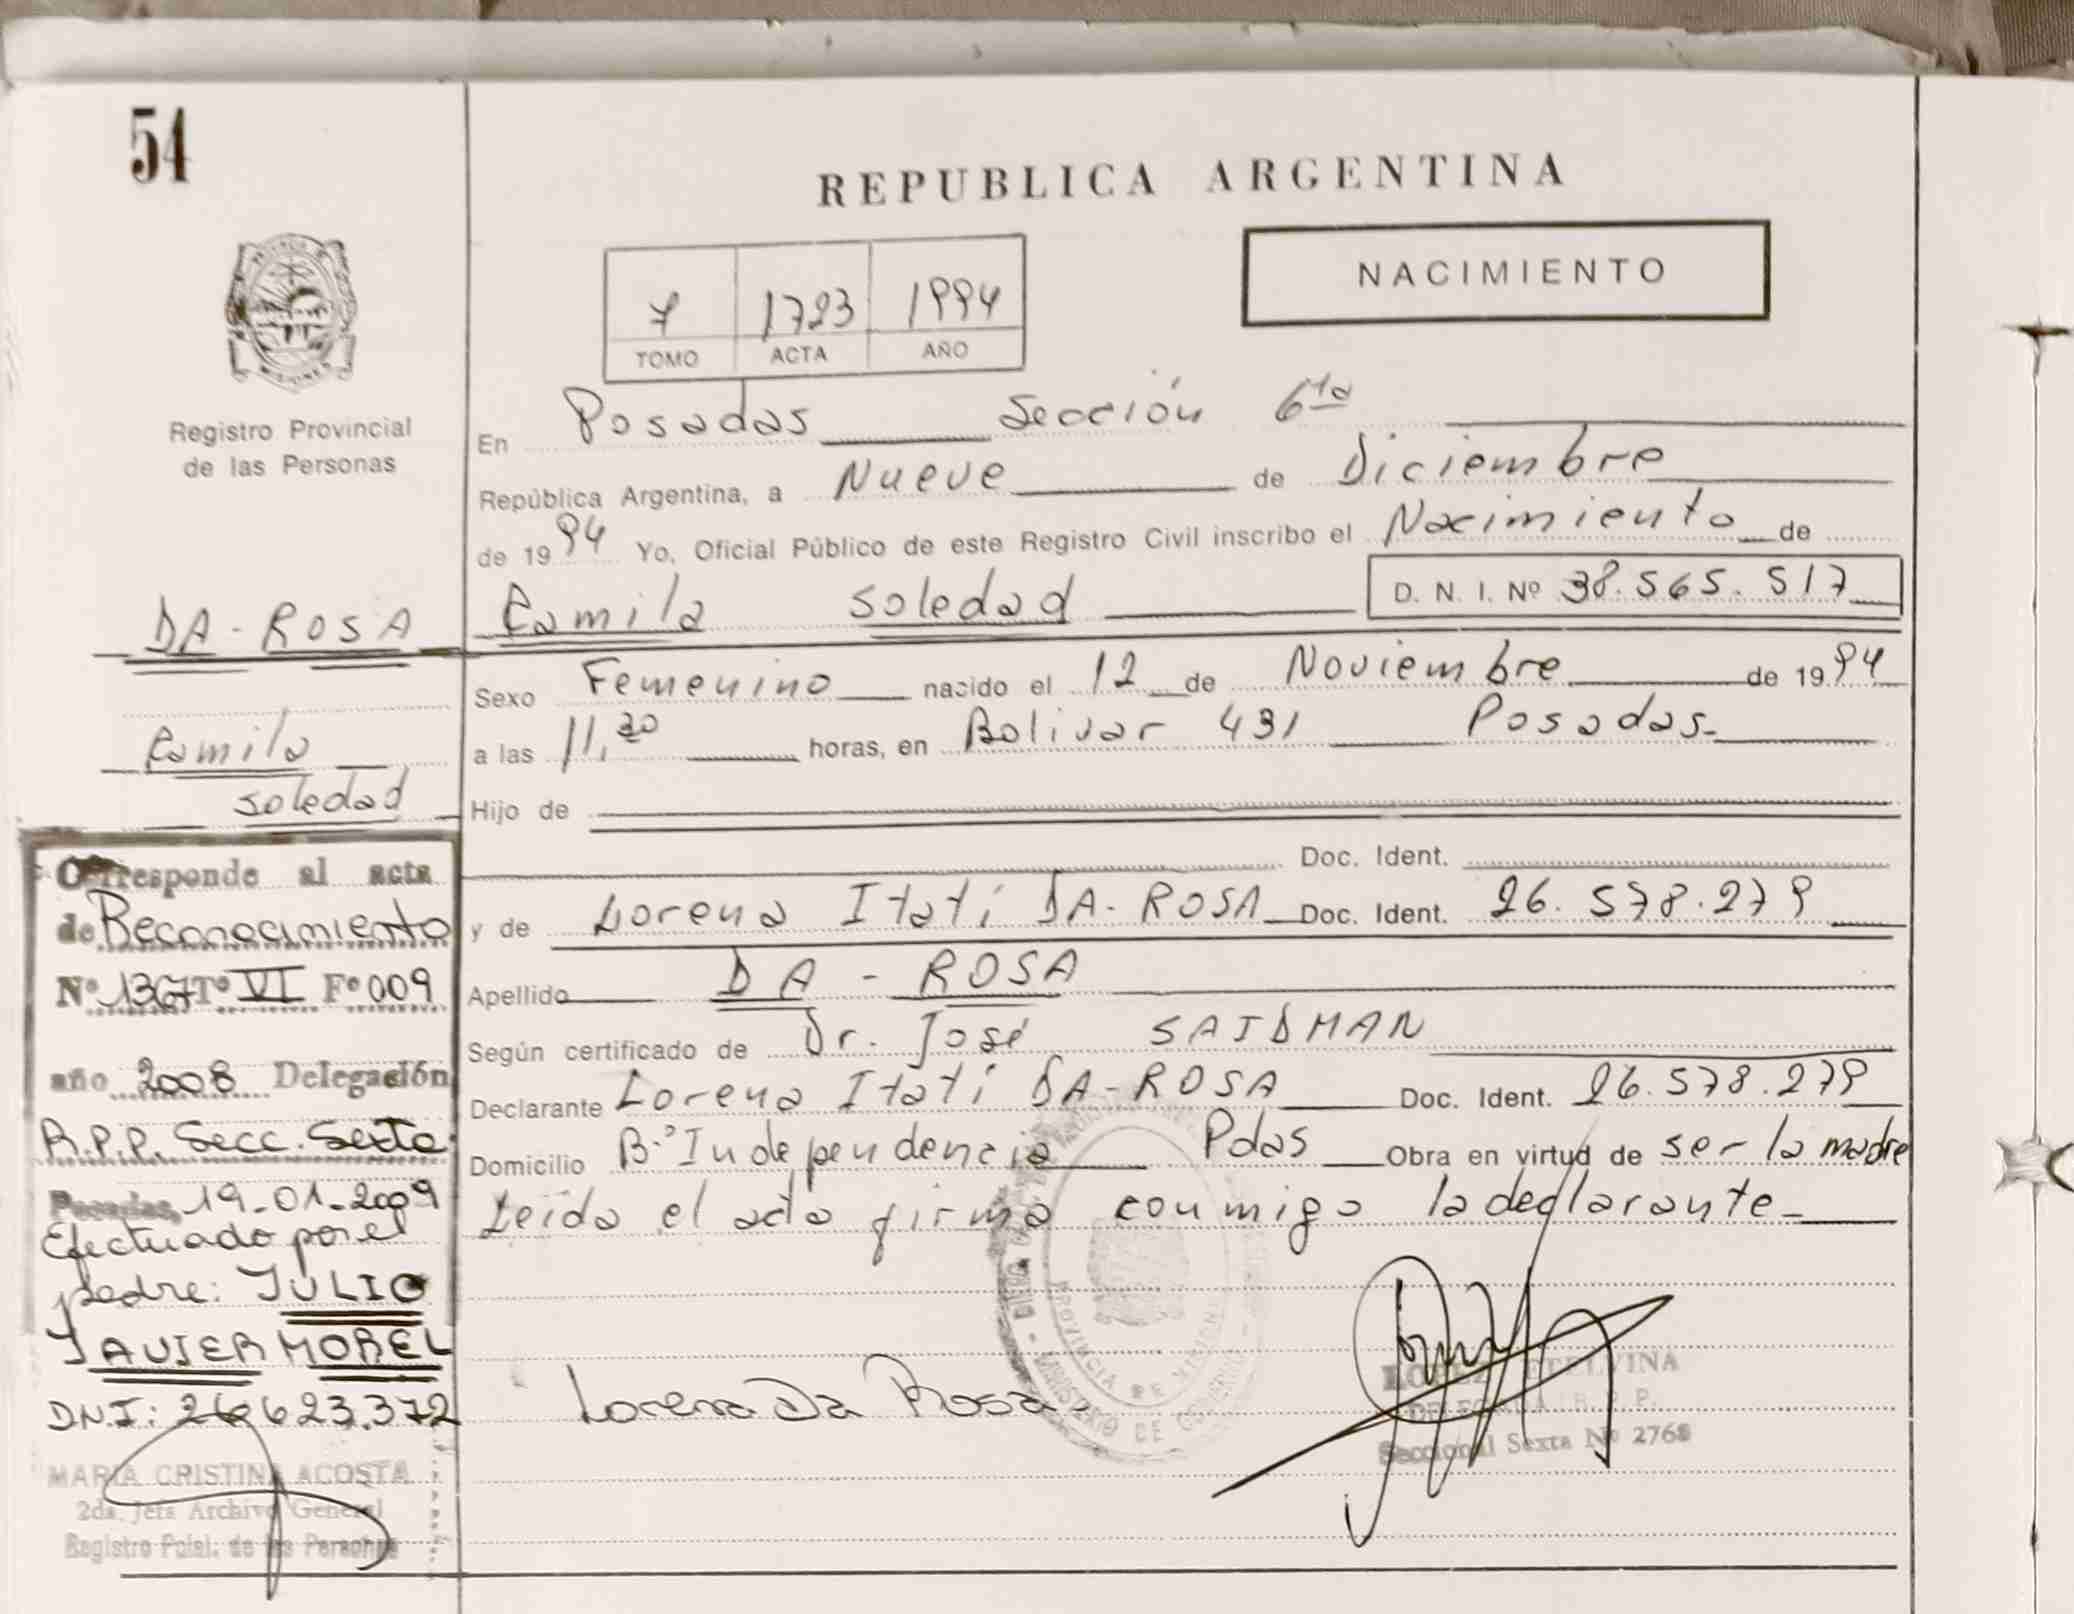 54
REPUBLICA ARGENTINA
NACIMIENTO
7 1723 1994
TOMO ACTA AÑO
MISIONES
Registro Provincial
de las Personas
DA-ROSA
Camila
Soledad
En Posadas Sección 6ta
República Argentina, a Nueve de Diciembre
de 1994 Yo, Oficial Público de este Registro Civil inscribo el Nacimiento de
Camila Soledad D. N. I. Nº 38.565.517
Sexo Femenino nacido el 12 de Noviembre de 1994
a las 11,30 horas, en Bolivar 431 Posadas-
Hijo de
Doc. Ident.
y de Lorena Itatí DA-ROSA Doc. Ident. 26.578.279
Apellido DA-ROSA
Según certificado de Dr. José SAIDMAN
Declarante Lorena Itatí DA-ROSA Doc. Ident. 26.578.279
Domicilio B°Independencia Pdas Obra en virtud de ser la madre
Leída el acta firma conmigo la declarante-
Lorena Da Rosa.
PROVINCIA DE MISIONES
MINISTERIO DE GOBIERNO
DELEGADA R. P. P.
Seccional Sexta Nº 2768
Corresponde al acta
de Reconocimiento
Nº 1367 Tº VI Fº 009
año 2008 Delegación
R.P.P. Secc. Sexta
Posadas, 19-01-2009
Efectuado por el
padre: JULIO
JAVIER MOREL
DNI: 26623.372
MARIA CRISTINA ACOSTA
2da. Jefa Archivo General
Registro Pcial. de las Personas